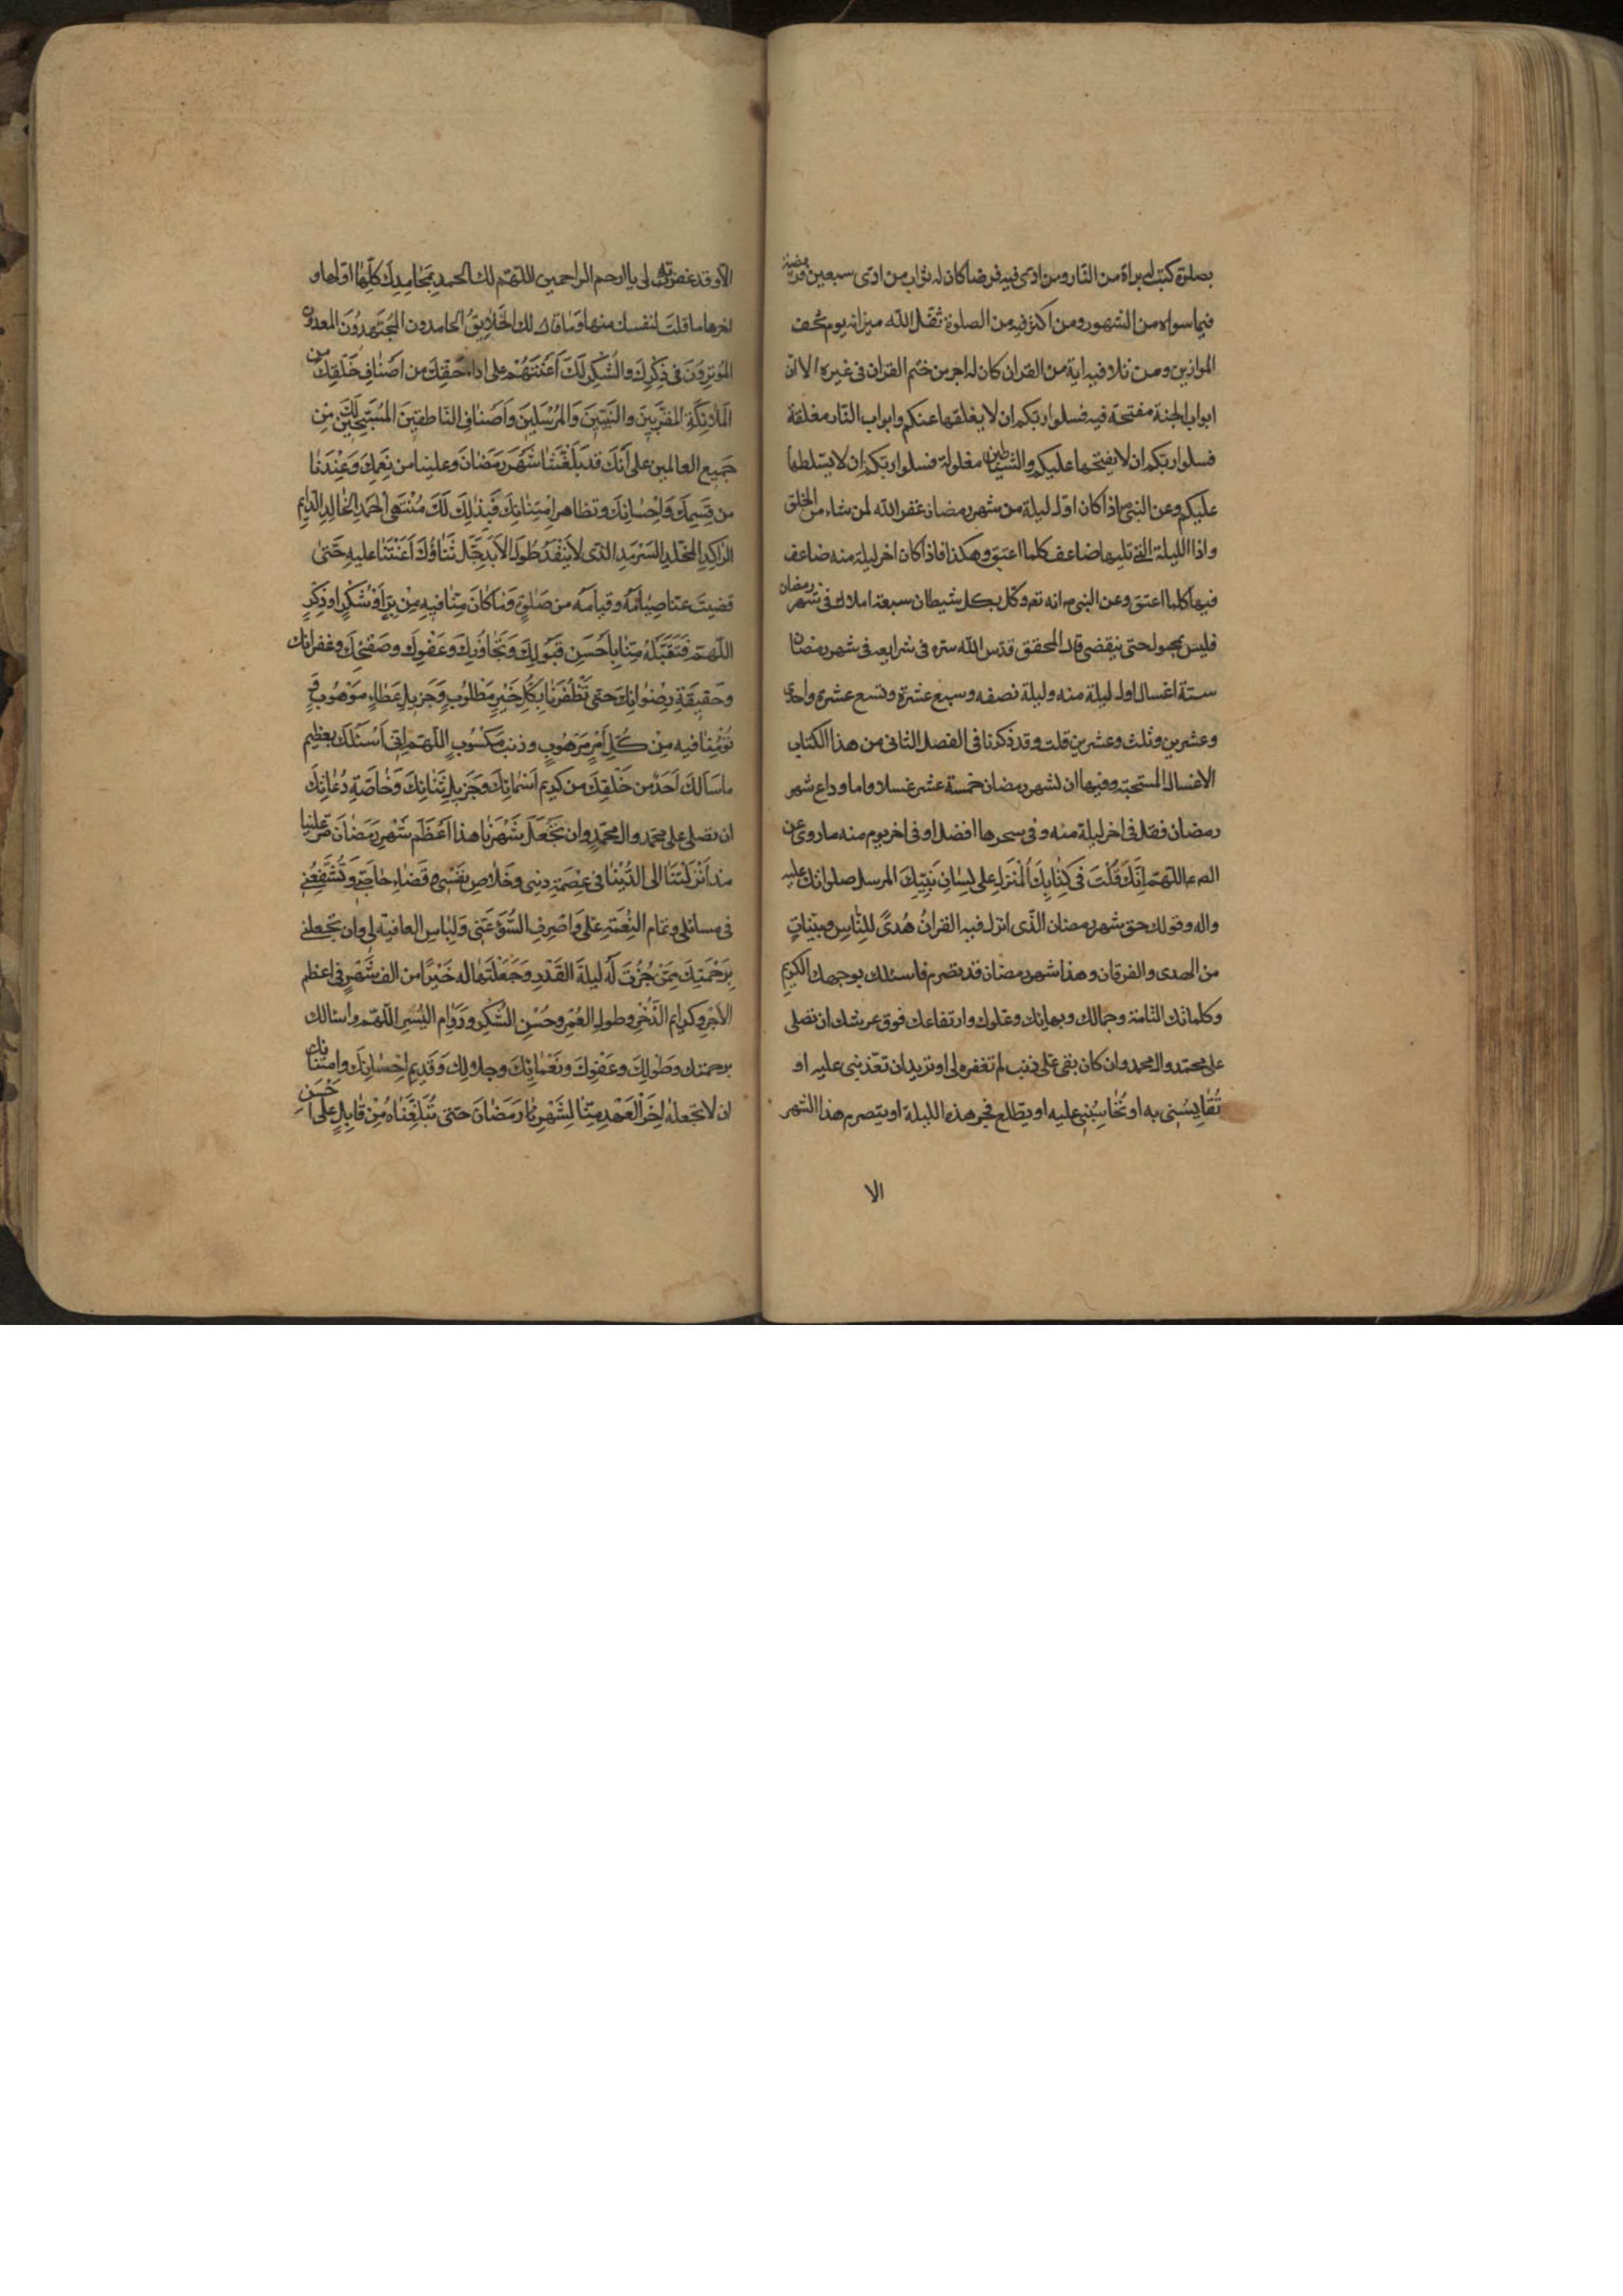 بصلوة كتب له براة من النار ومن ادى فيه فرضا كان له ثواب من ادى سبعين فريضة
فيما سواه من الشهور ومن اكثر فيه من الصلوة ثقل الله ميزانه يوم تخف
الموازين ومن تلا فيه اية من القران كان له اجر من ختم القران فى غيره الا ان
ابواب الجنة مفتحة فيه فسلوا ربكم ان لا يغلقها عنكم وابواب النار مغلقة
فسلوا ربكم ان لا يفتحها عليكم والشياطين مغلولة فسلوا ربكم ان لا يسلطها
عليكم وعن النبى ص اذا كان اول ليلة من شهر رمضان غفر الله لمن شاء من الخلق
واذا الليلة التى تليها ضاعف كلما اعتق وهكذا فاذا كان اخر ليلة منه ضاعف
فيها كلما اعتق وعن النبى ص انه تع وكل بكل شيطان سبعة املاك فى شهر رمضان
فليس بمحول حتى ينقضى قال المحقق قدس الله سره فى شرايعه فى شهر رمضان
ستة اغسال اول ليلة منه وليلة نصفه وسبع عشرة وتسع عشرة واحدى
وعشرين وثلث وعشرين قلت وقد ذكرنا فى الفصل الثانى من هذا الكتاب
الاغسال المستحبة وفيها ان لشهر رمضان خمسة عشر غسلا واما وداع شهر
رمضان فقل فى اخر ليلة منه وفى سحرها افضل او فى اخر يوم منه ما روى عن
الص ع اللهم اِنَّكَ قُلْتَ فى كِتٰابِكَ الْمُنْزَلِ على لِسٰانِ نَبِيِّكَ المرسل صلواتك عليه
واله وقولك حق شهر رمضان الّذى انزل فيه القرانُ هُدىً لِلنّٰاسِ وبيّناتٍ
من الهدى والفرقان وهذا شهر رمضان قد تصرم فاسئلك بوجهك الكريم
وكلماتك التامة وجمالك وبهائك وعلوك وارتفاعك فوق عرشك ان تصلى
على محمد وال محمد وان كان بقى علىّ ذنب لم تغفره لى او تريد ان تعذبنى عليه او
تُقٰايِسُنى به او تُحٰاسِبُنى عليه او يطلع فجر هذه الليلة او يتصرم هذا الشهر
الا
الا وقد غفرته لى يا ارحم الراحمين اللهم لك الحمد بِمَحٰامِدِكَ كُلِّهٰا اولها و
اخرها ما قلتَ لنفسك منها وَمٰا قال لك الخَلٰايِقُ الحامدون المُجْتَهِدُونَ المعدودون
المُؤثِرُونَ فى ذِكْرِكَ والشُّكْرِ لَكَ اَعَنْتَهُمْ على اداء حَقِّكَ من اَصْنٰافِ خَلْقِكَ من
المَلٰائِكَةِ المقَرَّبِينَ والنَّبِيّينَ وَالمُرْسَلِينَ وَاَصْنٰافِ النّٰاطِقينَ المُسَبِّحِينَ لَكَ مِنْ
جَمِيعِ العالمين على اَنَّكَ قد بَلَّغْتَنٰا شَهْرَ رَمَضٰانَ وعلينا من نِعَمِكَ وَعِنْدَنٰا
من قِسَمِكَ وَاِحْسٰانِكَ وتظاهر اِمْتِنٰانِكَ فَبِذٰلِكَ لَكَ مُنْتَهَى الْحَمْدِ الخٰالِدِ الدّٰايِمِ
الرّاكِدِ المُخَلَّدِ السَّرْمَدِ الذى لٰا يَنْفَدُ طُولَ الْاَبَدِ جَلَّ ثَنٰاؤُكَ اَعَنْتَنٰا عليهِ حَتّىٰ
قضيتَ عنا صِيٰامَهُ وقيامه من صَلٰوةٍ وَمٰا كٰانَ مِنّٰا فيهِ مِنْ بِرٍّ اَوْ شُكْرٍ او ذِكْرٍ
اللّهمّ فَتَقَبَّلْهُ مِنّٰا بِاَحْسَنِ قَبُولِكَ وَتَجٰاوُزِكَ وَعَفْوِكَ وَصَفْحِكَ وغفرانك
وحَقيقَةِ رِضْوٰانِكَ حَتى تُظْفِرَنٰا بِكُلِّ خَيْرٍ مَطْلُوبٍ وَجَزيلِ عَطٰاءٍ مَوْهُوبٍ وَ
تُؤْمِنَنٰا فيه مِنْ كُلِّ اَمْرٍ مَرْهُوبٍ وذنبٍ مَكْسُوبٍ اللّهمّ اِنّى اَسْئَلُكَ بعظيم
ما سَاَلَكَ اَحَدٌ من خَلْقِكَ من كَرِيمِ اَسْمٰائِكَ وَجَزيلِ ثَنٰائِكَ وَخٰاصَّةِ دُعٰائِكَ
ان تصلى على محمد وال محمّدٍ وان تَجْعَلَ شَهْرَنٰا هذا اَعْظَمَ شَهْرِ رَمَضٰانَ مَرَّ علينا
منذ اَنْزَلْتَنٰا الى الدُّنْيٰا فى عِصْمَةِ دينى وخَلٰاصِ نَفْسى وقَضٰاءِ حٰاجَتى وَتُشَفِّعَنى
فى مسائلى وتمام النِّعْمَةِ عَلىَّ وَاصْرِفِ السُّوءَ عَنّى وَلِبٰاسِ العافية لى وَان تجعلنى
بِرَحْمَتِكَ مِمَّنْ حُزْتَ لَهُ ليلةَ القَدْرِ وَجَعَلْتَهٰا له خَيْرًا من الف شَهْرٍ فى اعظم
الاَجْرِ وكرايم الذُّخْرِ وطولِ العُمْرِ وحُسْنِ الشُّكْرِ ودَوٰامِ اليُسْرِ اللّهمّ واسالك
برحمتك وطَوْلِكَ وعَفْوِكَ ونَعْمٰائِكَ وجلالِكَ وَقَديمِ اِحْسٰانِكَ وامتنانك
ان لا تجعله اٰخِرَ الْعَهْدِ مِنّٰا لِشَهْرِ نٰا رَمَضٰانَ حَتّى تُبَلِّغَنٰاهُ مِنْ قٰابِلٍ على اَحْسَنِ